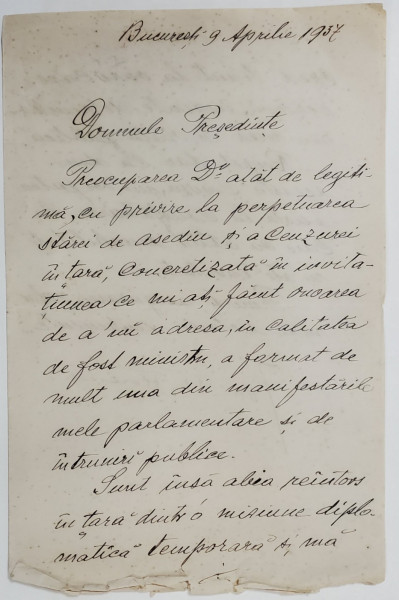 București 9 Aprilie 1937
Domnule Președinte
Preocuparea Dv atât de legiti-
mă, cu privire la perpetuarea
stărei de asediu și a cenzurei
în țară, concretizată în invita-
țiunea ce mi ați făcut onoarea
de a'mi adresa, în calitatea
de fost ministru, a format de
mult una din manifestările
mele parlamentare și de
întruniri publice.
Sunt însă abia reîntors
în țară dintr'o misiune diplo-
matică temporară și mă